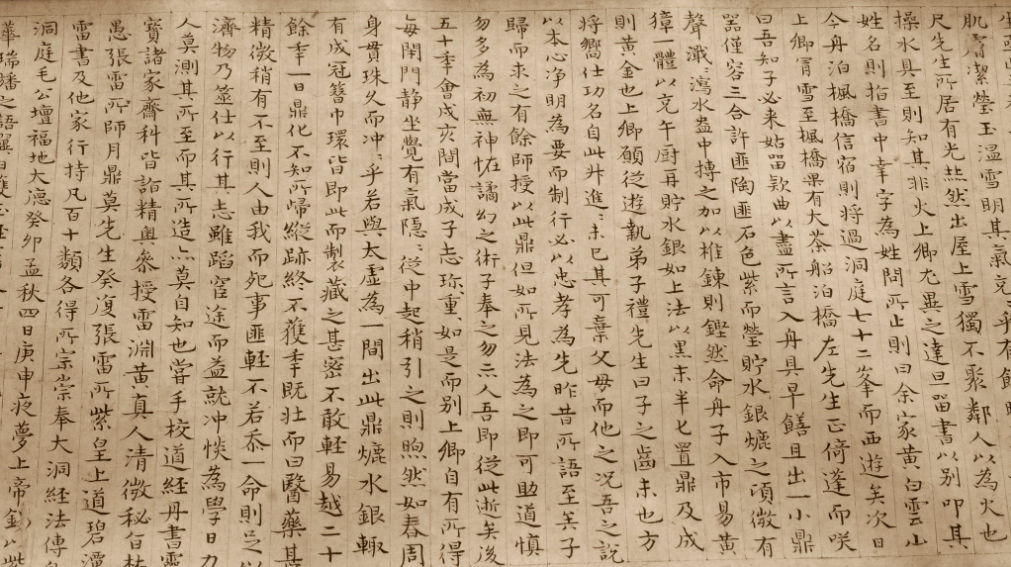 肌膚潔瑩玉溫雪明其氣
尺先生所居有光燕然出屋上雪獨不聚鄰人以為火也
操水具至則知其非火上卿尤異之達旦留書以別叩其
姓名則指書中幸字為姓問所止則曰余家黃白雲山
今舟泊楓橋信宿則將過洞庭七十二峯而西遊矣次日
上卿冐雪至楓橋果有大茶船泊橋左先生正倚蓬而咲
曰吾知子必来姑留欵曲以盡所言入舟具早饍且出一小鼎
噐僅容三合許匪陶匪石色紫而瑩貯水銀爊之頃微有
聲瀐瀐瀉水盎中摶之加以椎鍊則鏗然命舟子入市易黃
獐一體以充午厨再貯水銀如上法以黑末半匕置鼎及成
則黃金也上卿願從遊執弟子禮先生曰子之齒未也方
將嚮仕功名自此升進進未已其可棄父母而他之況吾之說
以本心净明為要而制行必以忠孝為先昨昔所語至矣子
歸而求之有餘師授以此鼎但如所見法為之即可助道慎
勿多為初無神恠譎幻之術子奉之勿示人吾即從此逝矣後
五十季會戍亥間當成子志珎重如是而别上卿自有所得
每閑門静坐覺有氣隱隱從中起稍引之則煦然如春周
身貫珠久而沖沖乎若與太虛為一間出此鼎爊水銀輙
有成冠簪巾環皆即此而制裁藏之甚密不敢輕易越二十
餘季一日鼎化不知所歸縱跡終不獲季既壯而曰醫藥其
精微稍有不至則人由我而死事匪輕不若忝一命則足以
濟物乃筮仕以行其志雖蹈宦途而益就沖惔為學日力
人莫測其所至而其所造亦莫自知也甞手校道經丹書靈
寶諸家齋科皆詣精奥叅授雷淵黃真人清微秘旨
愚張雷所師月鼎莫先生癸復張雷所紫皇上道碧潭
雷書及他家行持凡百十類各得所宗崇奉大洞經法傳
洞庭毛公壇福地大德癸卯孟秋四日庚申夜夢上帝